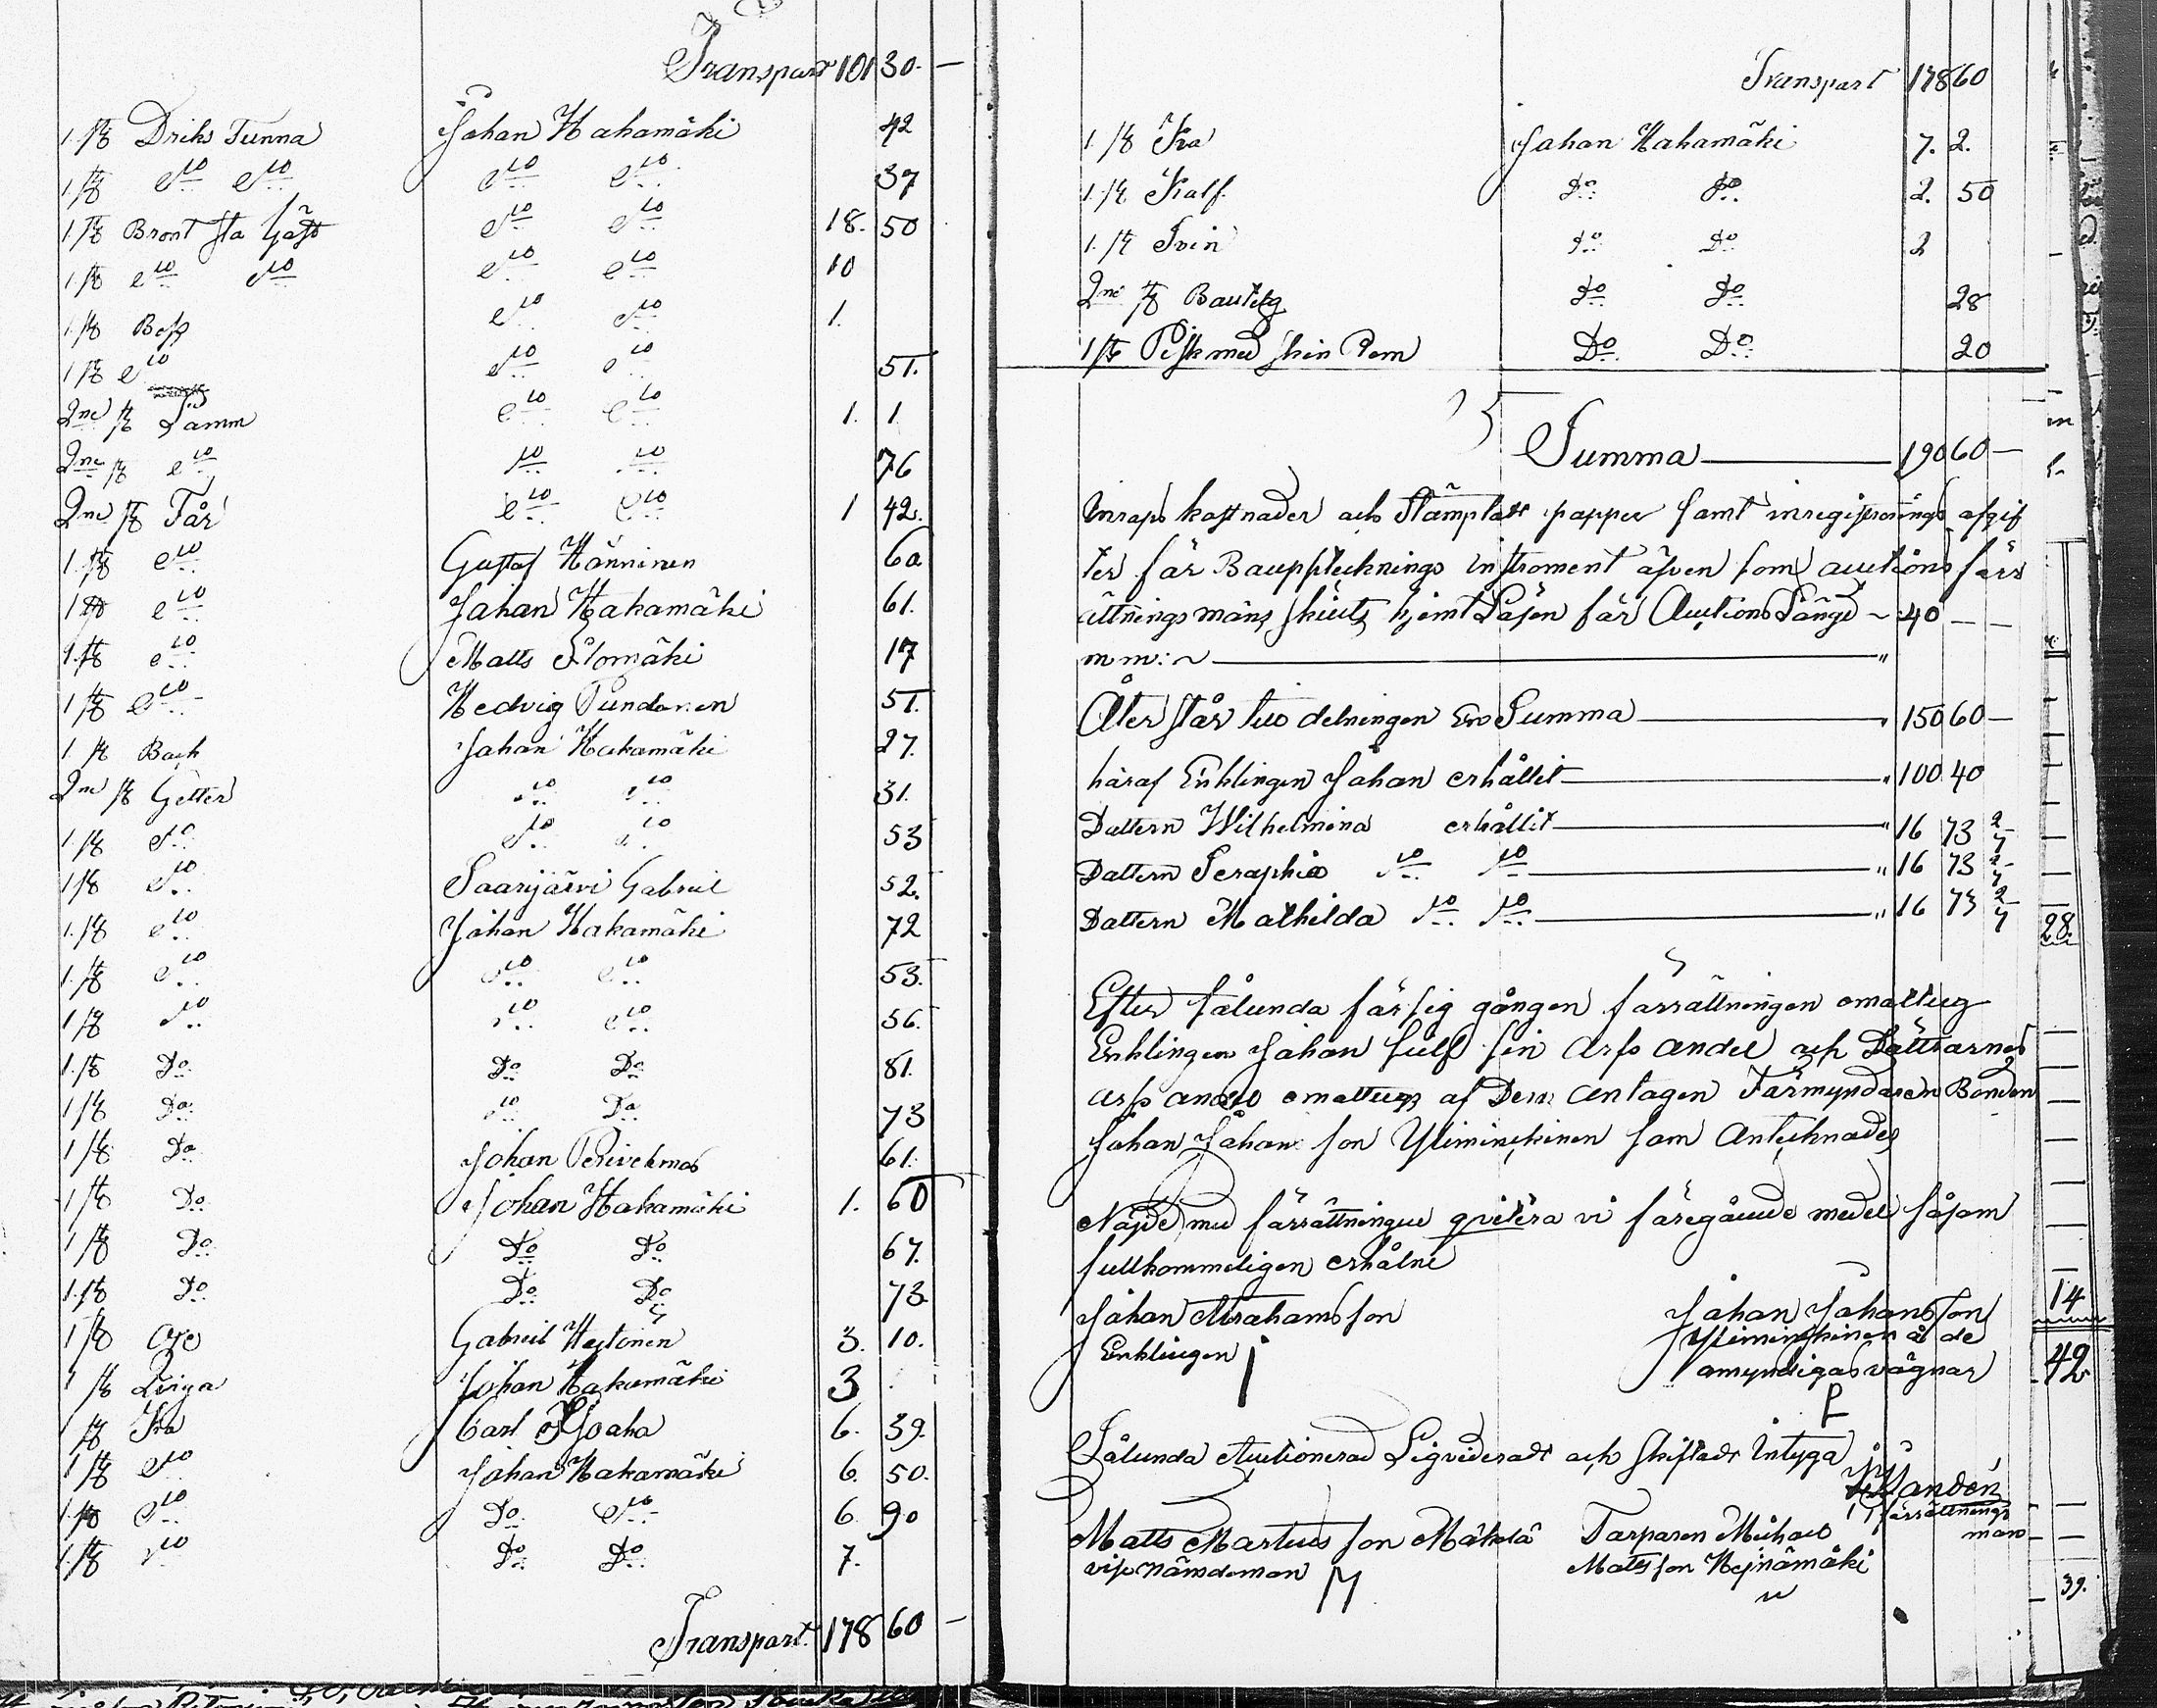 Transport 101 30. —
1. st Driks Tunna Johan Hakamäki 42
1. st d:o d:o d:o d:o 37
1 st Bront sto d:o d:o 18. 50
1 st d:o d:o d:o d:o 10
1. st d:o d:o 1.
1 st d:o d:o d:o 51.
2ne st Lamm d:o d:o 1. 1
2ne st d:o d:o d:o 76
2ne st Får d:o d:o 1 42.
1. st d:o Gustaf Hänninen 60
1 st d:o Johan Hakamäki 61.
1. st d:o Matts Elomäki 17
1 st d:o Hedvig 51.
1. st Bock Johan Hakamäki 27.
2ne st Getter d:o d:o 31.
1. st d:o d:o d:o 53
1 st d:o Saarijärvi Gabriel 52.
1. st d:o Johan Hakamäki 72
1. st d:o d:o d:o 53.
1 st d:o d:o d:o 56.
1. st Do Do Do 81.
1 st Do d:o Do 73
1 st Do Johan 61.
1 st Do Johan Hakamäki 1. 60
1 st Do Do Do 67.
1. st Do Do Do 73
1 st Oxe Gabriel 3. 10.
1 st Qviga Johan Hakamäki 3
1 st Ko Carl 6. 39.
1 st d:o Johan Hakamäki 6. 50.
1. st d:o Do d:o 6 90
1. st d:o Do Do 7.
Transport. 178 60 —
Transport 178 60
1. st Ko Johan Hakamäki 7. 2.
1. st Kalf. Do Do 2. 50
1. st Svin Do Do 2
2ne st Do Do 28
1 st Pisk med skin Rem Do Do 20
Summa — 190 60 —
kostnader och Stämplat papper samt inregistrerings afgif
ter för Bouppteknings instroment äfven som auctions förr
ättnings mäns skiuts hjemt Lösen för Auctions Längd ~ 40 — —
m m: ~ — "
Åter står till delningen En Summa — " 150 60 —
häraf Enklingen Johan erhållit — " 100 40
Dottern Wilhelmina erhållit — " 16 73 2/7
Dottern Seraphia d:o d:o — " 16 73 2/7
Dottern Mathilda d:o d:o — " 16 73 2/7
Efter sålunda försig gången förrättningen emottog
Enklingen Johan sielf sin arfs andel och Döttrarnas
arfs andel emottogs af Dem antagen Förmyndaren Bonden
Johan Johans son Yliminskinen som Antecknades
Nöjde med förrättningen qvitera vi föregående medel såsom
fullkommeligen erhålne
Johan Abrahams son Johan Johans son
Enklingen Yliminskinen å de
omyndigas vägnar
Sålunda Auctionerad Liqvideradt och skiftadt Intyga
Sandén
förrättnings
man
Matts Mattes son Mäkelä Michael
nämdeman Matts son Heinämäki
28.
14
42
39.